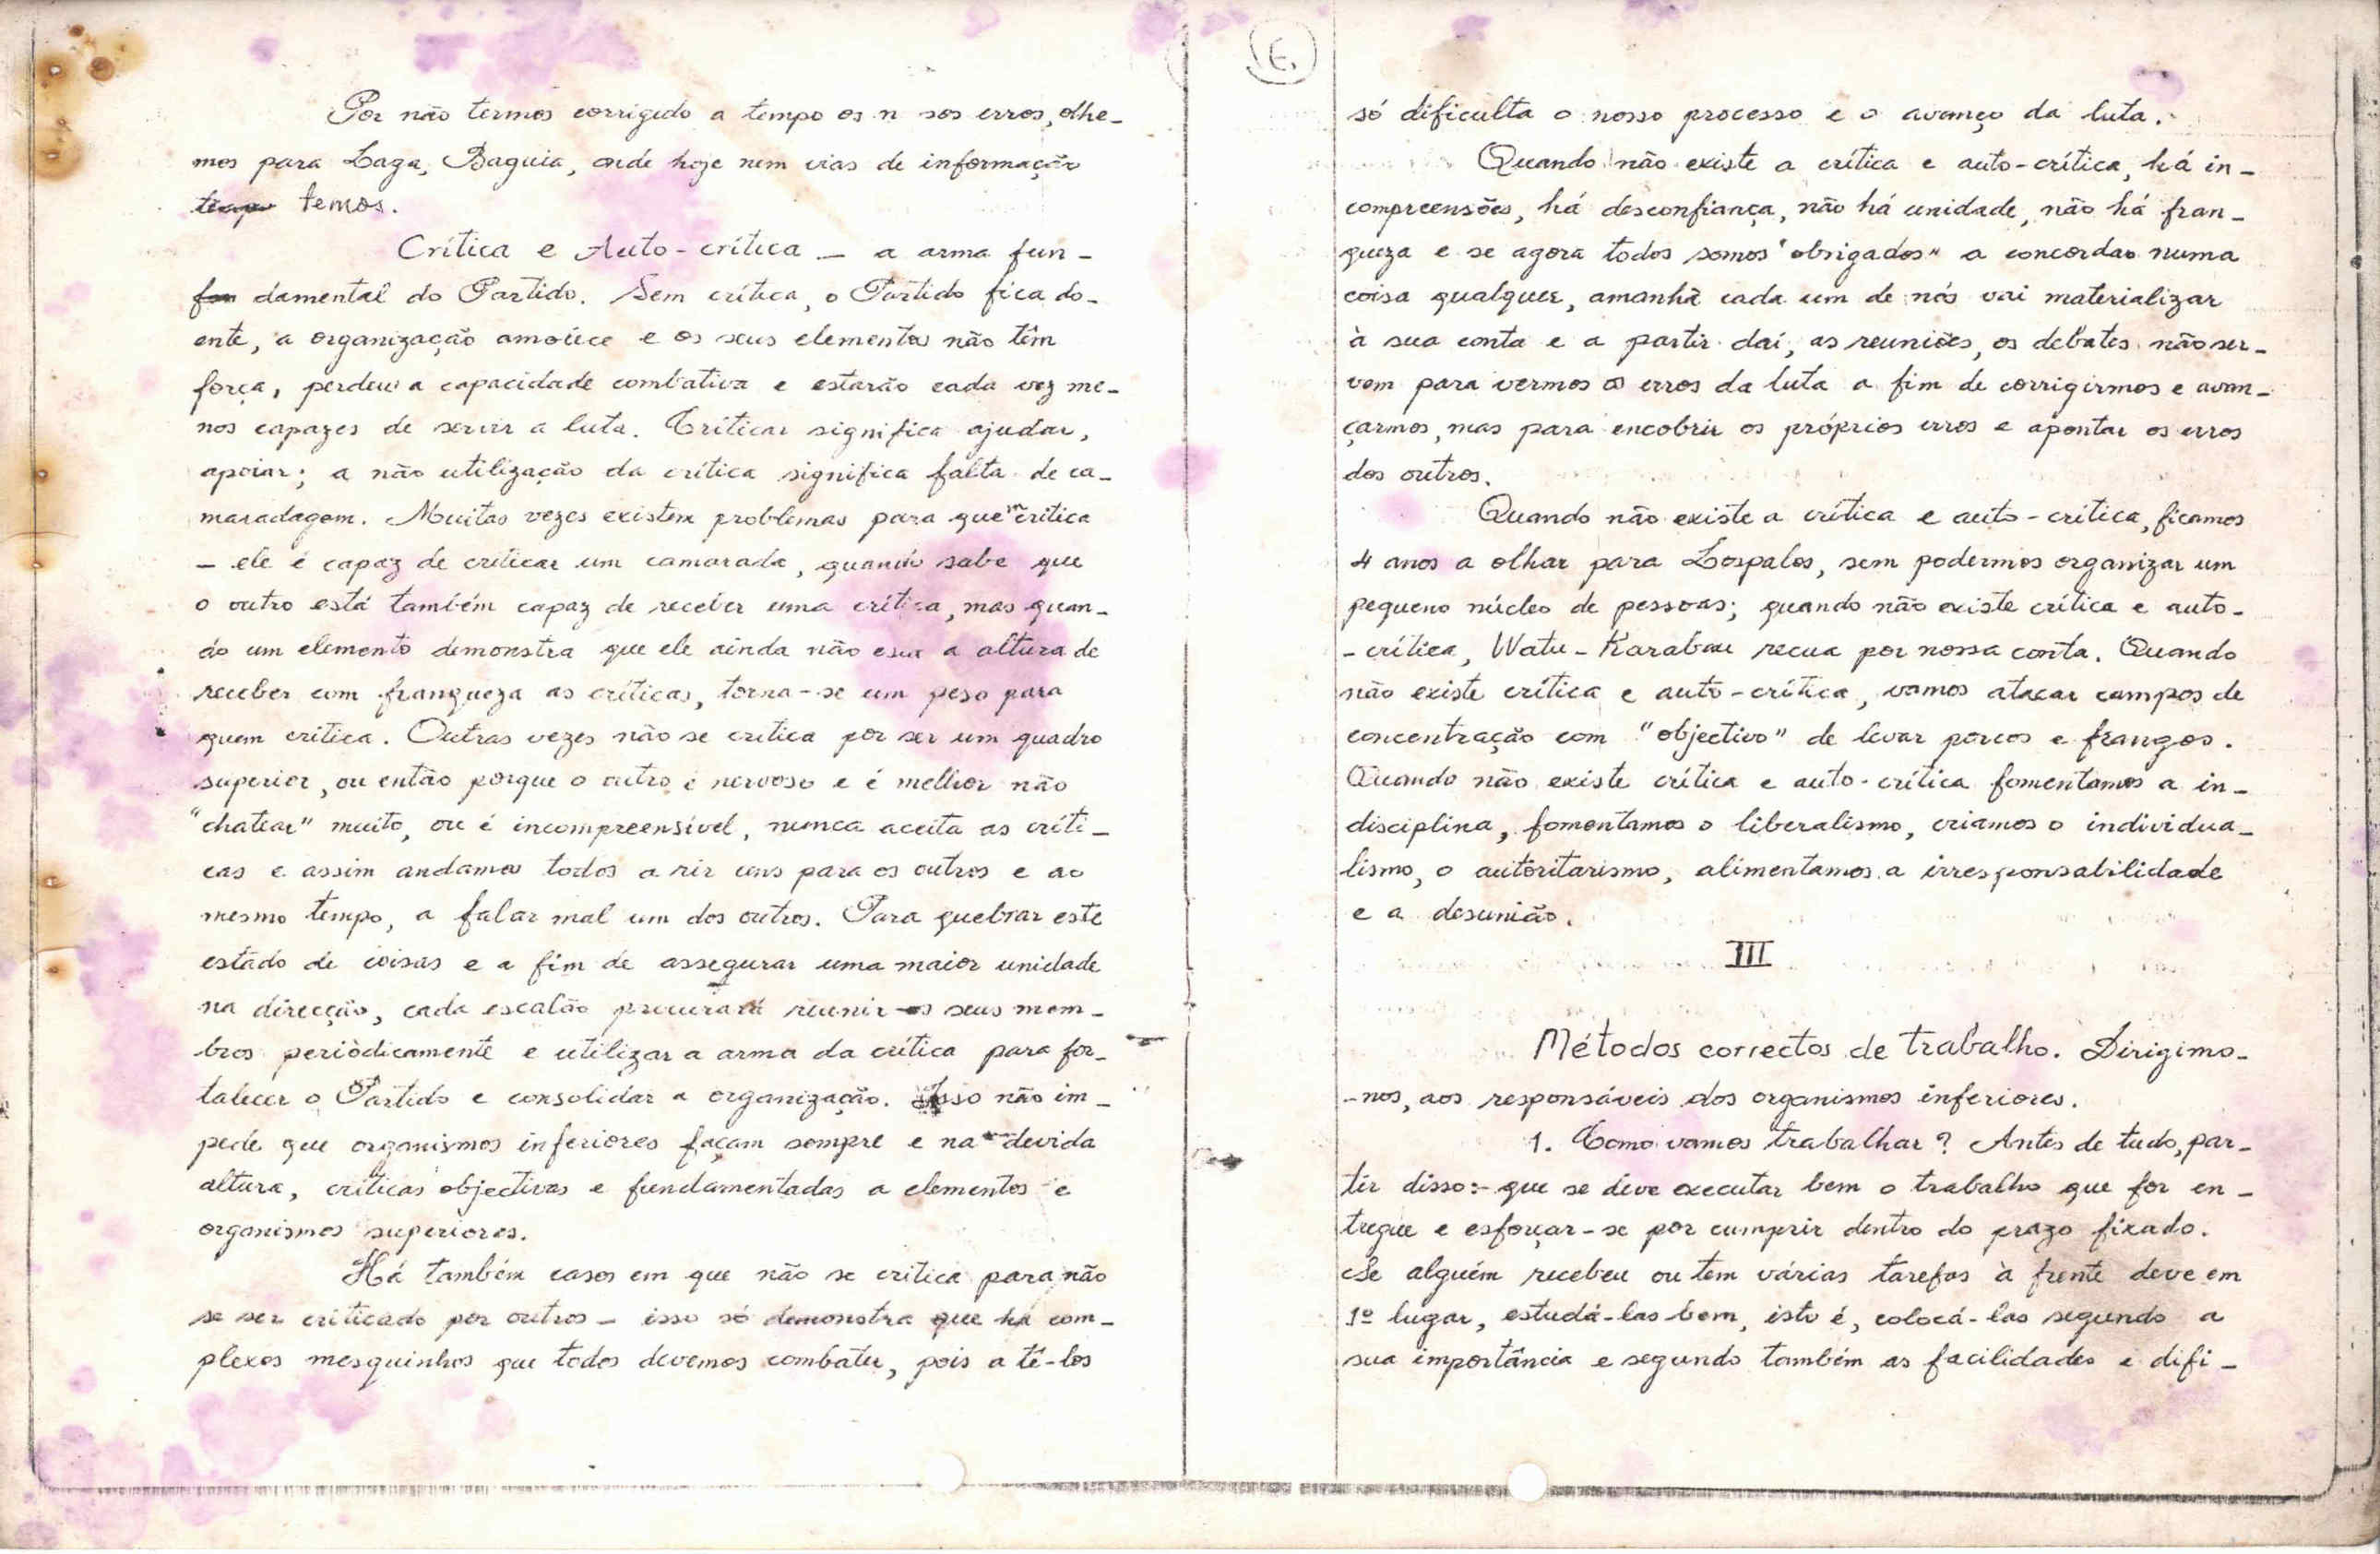 Por não termos corrigido a tempo os n sos erros, olhe-
mos para Laga, Baguia, onde hoje nem vias de informação
temos.
Crítica e Auto-crítica - a arma fun-
damental do Partido. Sem crítica, o Partido fica do-
ente, a organização amolece e os seus elementos não têm
força, perdem a capacidade combativa e estarão cada vez me-
nos capazes de servir a luta. Criticar significa ajudar,
apoiar; a não utilização da crítica significa falta de ca-
maradagem. Muitas vezes existem problemas para quem critica
- ele é capaz de criticar um camarada, quando sabe que
o outro está também capaz de receber uma crítica, mas quan-
do um elemento demonstra que ele ainda não está a altura de
receber com franqueza as críticas, torna-se um peso para
quem critica. Outras vezes não se critica por ser um quadro
superior, ou então porque o outro é nervoso e é melhor não
"chatear" muito, ou é incompreensível, nunca aceita as críti-
cas e assim andamos todos a rir uns para os outros e ao
mesmo tempo, a falar mal um dos outros. Para quebrar este
estado de coisas e a fim de assegurar uma maior unidade
na direcção, cada escalão procurará reunir os seus mem-
bros periòdicamente e utilizar a arma da crítica para for-
talecer o Partido e consolidar a organização. Isso não im-
pede que organismos inferiores façam sempre e na devida
altura, críticas objectivas e fundamentadas a elementos e
organismos superiores.
Há também casos em que não se critica para não
se ser criticado por outros - isso só demonstra que há com-
plexos mesquinhos que todos devemos combater, pois a tê-los
6.
só dificulta o nosso processo e o avanço da luta.
Quando não existe a crítica e auto-crítica, há in-
compreensões, há desconfiança, não há unidade, não há fran-
queza e se agora todos somos "obrigados" a concordar numa
coisa qualquer, amanhã cada um de nós vai materializar
à sua conta e a partir daí, as reuniões, os debates não ser-
vem para vermos os erros da luta a fim de corrigirmos e avan-
çarmos, mas para encobrir os próprios erros e apontar os erros
dos outros.
Quando não existe a crítica e auto-crítica, ficamos
4 anos a olhar para Lospalos, sem podermos organizar um
pequeno núcleo de pessoas; quando não existe crítica e auto-
-crítica, Watu-Karabau recua por nossa conta. Quando
não existe crítica e auto-crítica, vamos atacar campos de
concentração com "objectivo" de levar porcos e frangos.
Quando não existe crítica e auto-crítica fomentamos a in-
disciplina, fomentamos o liberalismo, criamos o individua-
lismo, o autoritarismo, alimentamos a irresponsabilidade
e a desunião.
III
Métodos correctos de trabalho. Dirigimo-
-nos, aos responsáveis dos organismos inferiores.
1. Como vamos trabalhar? Antes de tudo, par-
tir disso:- que se deve executar bem o trabalho que for en-
tregue e esforçar-se por cumprir dentro do prazo fixado.
Se alguém recebeu ou tem várias tarefas à frente deve em
1º lugar, estudá-las bem, isto é, colocá-las segundo a
sua importância e segundo também as facilidades e difi-